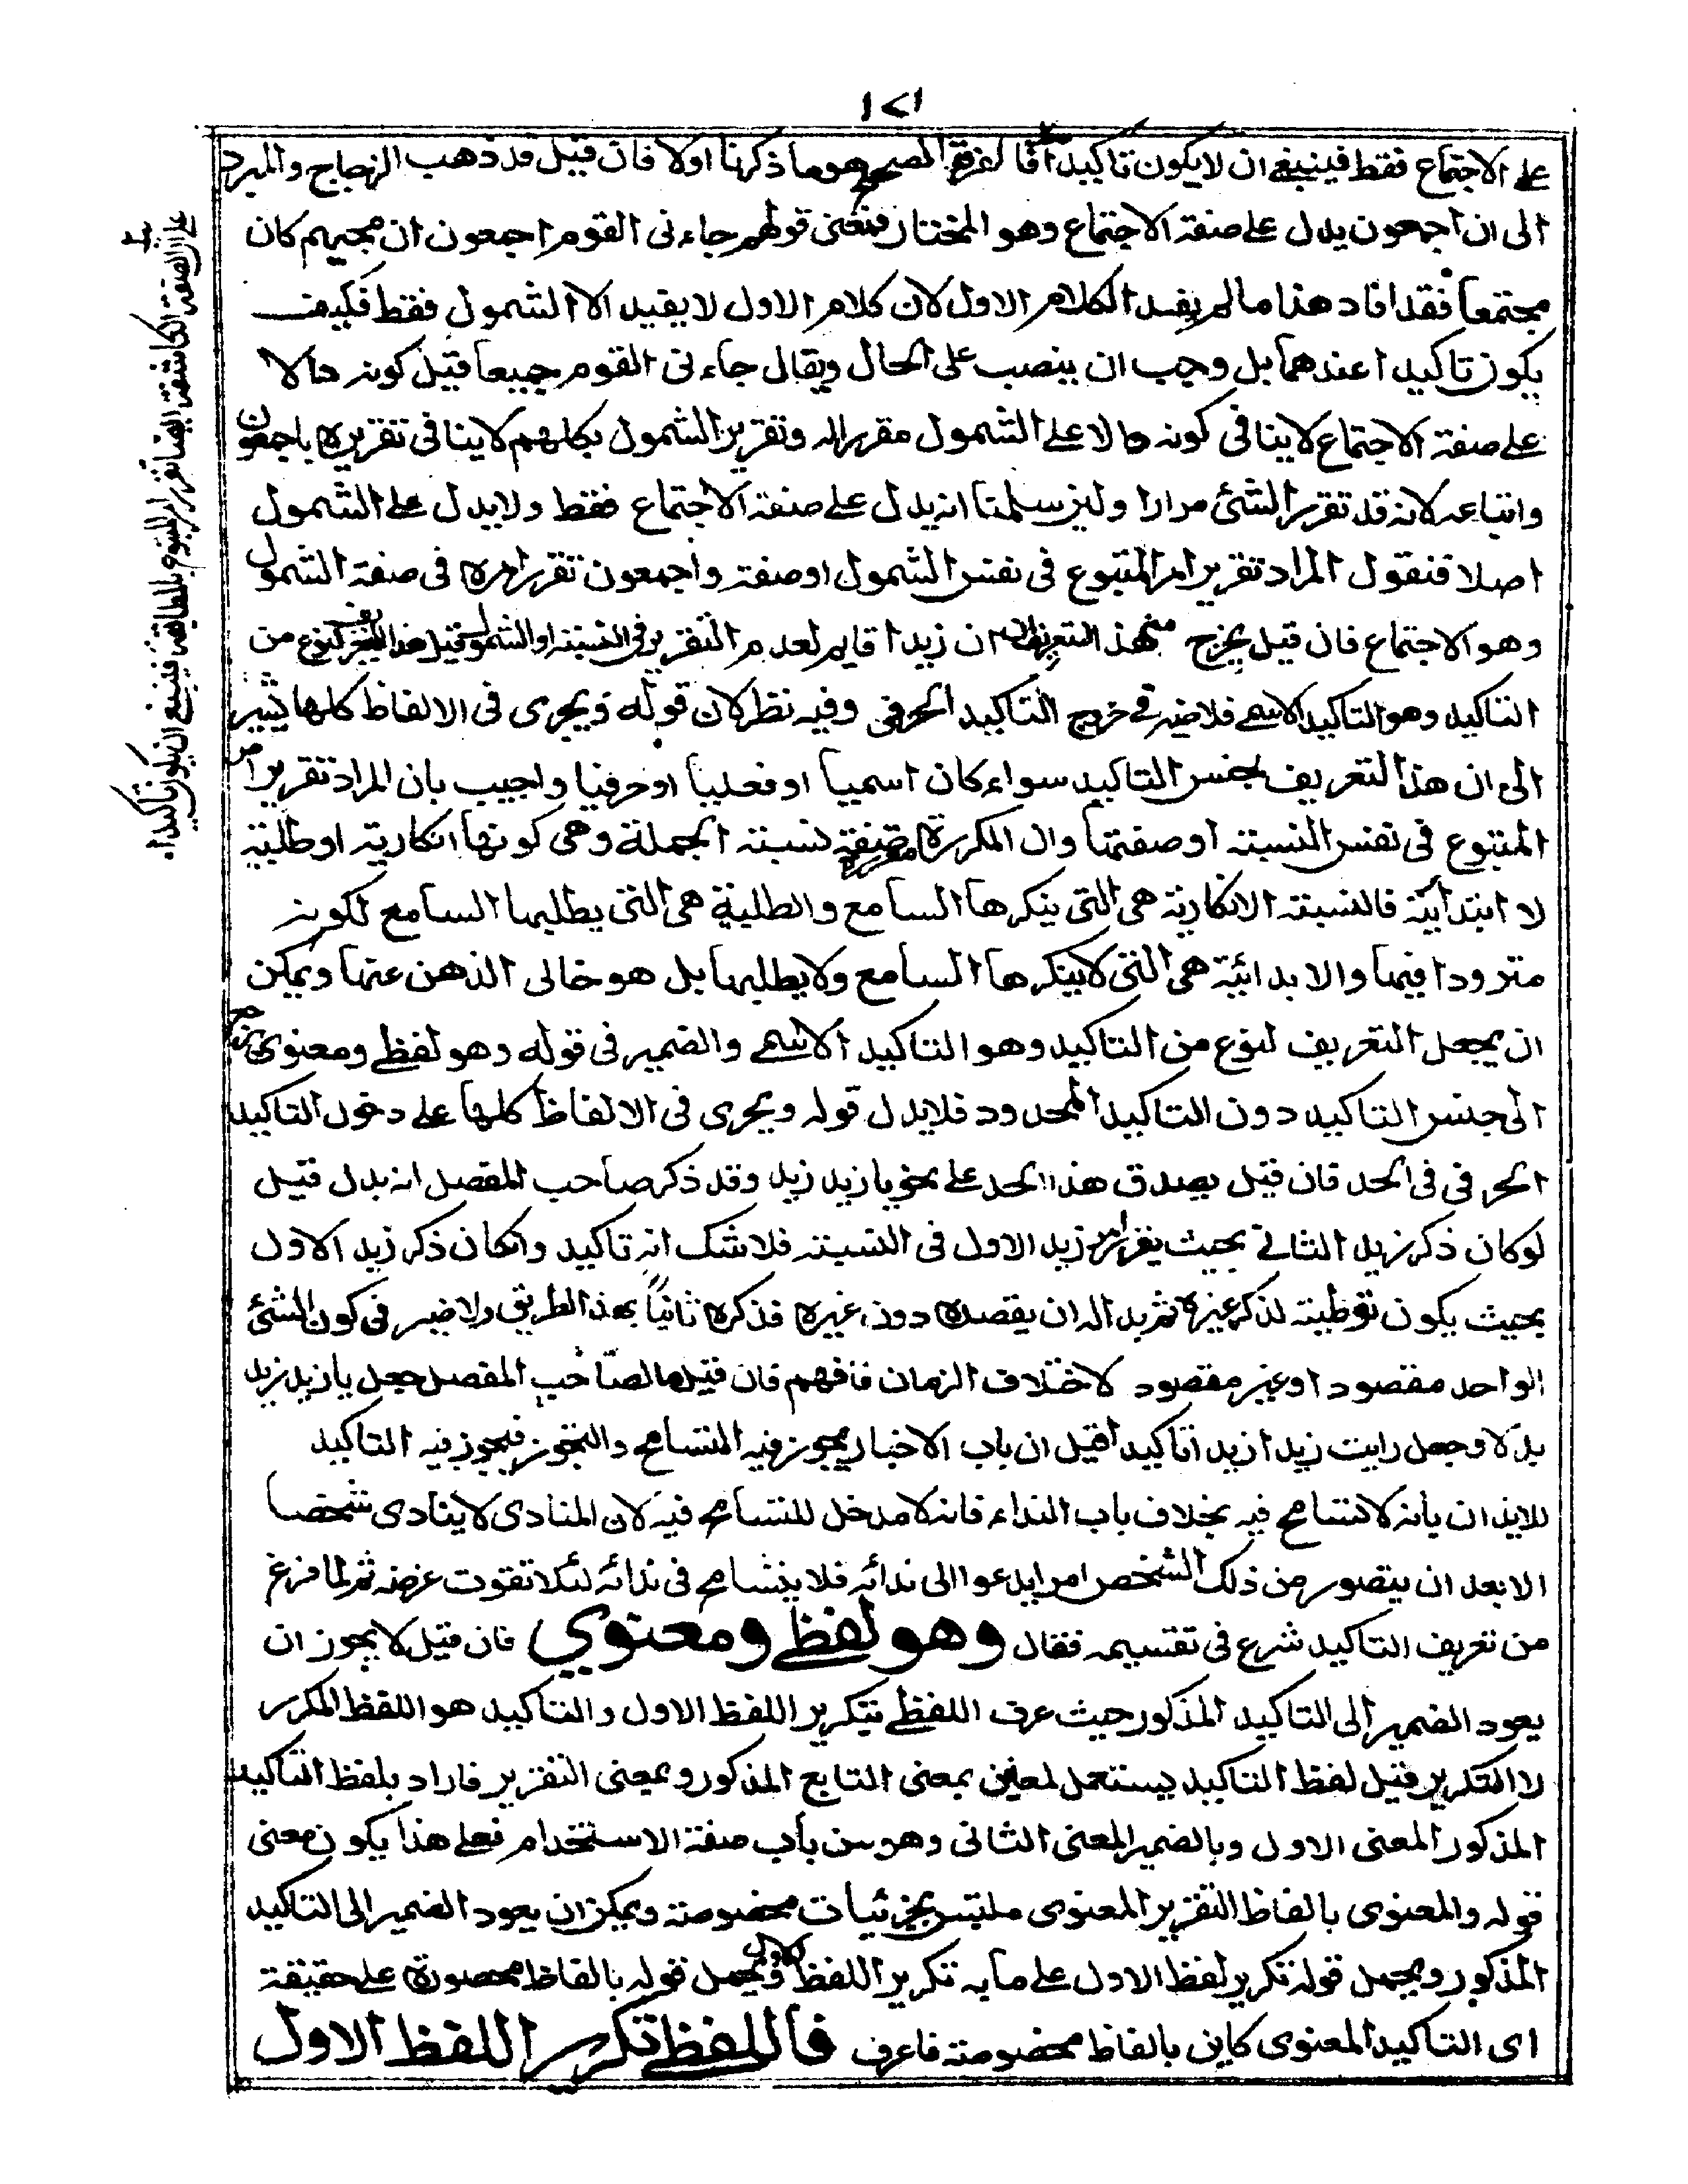 ١٢١
على الاجتماع فقط فينبغى ان لا يكون تاكيدا المصحح هو ما ذكرنا اولا فان قيل قد ذهب الزجاج والمبرد
الى ان اجمعون يدل على صفة الاجتماع وهو المختار فمعنى قولهم جاءنى القوم اجمعون ان مجيهم كان
مجتمعا فقد افاد هذا ما لم يفد الكلام الاول لان كلام الاول لا يفيد الا الشمول فقط فكيف
يكون تاكيدا عندهما بل وجب ان ينصب على الحال ويقال جاءنى القوم جميعا قيل كونه دالا
على صفة الاجتماع لا ينافى كونه دالا على الشمول مقررا له وتقرير الشمول بكلهم لا ينافى تقريره باجمعون
واتباعه لانه قد تقرر الشئ مرارا ولئن سلمنا انه يدل على صفة الاجتماع فقط ولا يدل على الشمول
اصلا فنقول المراد تقرير امر المتبوع فى نفس الشمول او صفته واجمعون تقرر امره فى صفة الشمول
وهو الاجتماع فان قيل يخرج من هذا التعريف ان زيدا قايم لعدم التقرير فى النسبة او الشمول قيل هذا التعريف لنوع من
التاكيد وهو التاكيد الاسمى فلا ضير فى خروج التاكيد الحرفى وفيه نظر لان قوله ويجرى فى الالفاظ كلها يشير
الى ان هذا التعريف لجنس التاكيد سواء كان اسميا او فعليا او حرفيا واجيب بان المراد تقرير امر
المتبوع فى نفس النسبة او صفتها وان المكررة مقررة صفة نسبة الجملة وهى كونها انكارية او طلبية
لا ابتدائية فالنسبة الانكارية هى التى ينكرها السامع والطلبية هى التى يطلبها السامع لكونه
مترددا فيها والابدائية هى التى لا ينكرها السامع ولا يطلبها بل هو خالى الذهن عنها ويمكن
ان يجعل التعريف لنوع من التاكيد وهو التاكيد الاسمى والضمير فى قوله وهو لفظى ومعنوى يرجع
الى جنس التاكيد دون التاكيد المحدود فلا يدل قوله ويجرى فى الالفاظ كلها على دخول التاكيد
الحرفى فى الحد فان قيل يصدق هذا الحد على نحو يا زيد زيد وقد ذكر صاحب المفصل انه بدل قيل
لو كان ذكر زيد الثانى بحيث يقرر امر زيد الاول فى النسبة فلا شك انه تاكيد وان كان ذكر زيد الاول
بحيث يكون توطية لذكر غيره ثم بدا له ان يقصده دون غيره فذكره ثانيا بهذا الطريق ولا ضير فى كون الشئ
الواحد مقصودا وغير مقصود لاختلاف الزمان فافهم فان قيل ما لصاحب المفصل جعل يا زيد زيد
بدلا وجعل رايت زيدا زيدا تاكيدا قيل ان باب الاخبار يجوز فيه التسامح والتجوز فيجوز فيه التاكيد
للايذان بانه لا تسامح فيه بخلاف باب النداء فانه لا مدخل للتسامح فيه لان المنادى لا ينادى شخصا
الا بعد ان يتصور من ذلك الشخص امر يدعوا الى ندائه فلا يتسامح فى ندائه لئلا تفوت غرضه ثم لما فرغ
من تعريف التاكيد شرع فى تقسيمه فقال وهو لفظى ومعنوي فان قيل لا يجوز ان
يعود الضمير الى التاكيد المذكور حيث عرف اللفظى بتكرير اللفظ الاول والتاكيد هو اللفظ المكرر
لا التكرير قيل لفظ التاكيد يستعمل لمعنين بمعنى التابع المذكور وبمعنى التقرير فاراد بلفظ التاكيد
المذكور المعنى الاول وبالضمير المعنى الثانى وهو من باب صفة الاستخدام فعلى هذا يكون معنى
قوله والمعنوى بالفاظ التقرير المعنوى ملتبس بجزئيات مخصوصة ويمكن ان يعود الضمير الى التاكيد
المذكور ويحمل قوله تكرير لفظ الاول على ما به تكرير اللفظ الاول ويحمل قوله بالفاظ محصورة على حقيقة
اى التاكيد المعنوى كاين بالفاظ مخصوصة فاعرف فاللفظى تكرير اللفظ الاول
على ان الصفة الكاشفة ايضا تقرر امر المتبوع فينبغى ان يكون تاكيدا